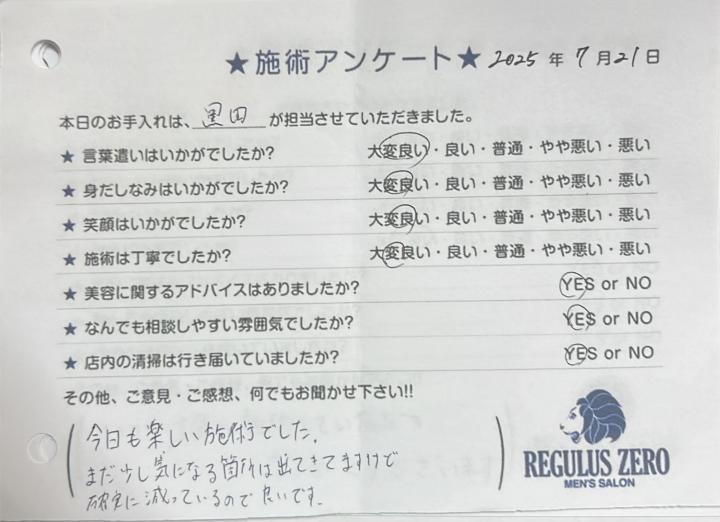 ★施術アンケート★ 2025年 7月21日
本日のお手入れは、黒田が担当させていただきました。
★ 言葉遣いはいかがでしたか? 大変良い・良い・普通・やや悪い・悪い
★ 身だしなみはいかがでしたか? 大変良い・良い・普通・やや悪い・悪い
★ 笑顔はいかがでしたか? 大変良い・良い・普通・やや悪い・悪い
★ 施術は丁寧でしたか? 大変良い・良い・普通・やや悪い・悪い
★ 美容に関するアドバイスはありましたか? YES or NO
★ なんでも相談しやすい雰囲気でしたか? YES or NO
★ 店内の清掃は行き届いていましたか? YES or NO
その他、ご意見・ご感想、何でもお聞かせ下さい!!
今日も楽しい施術でした.
まだ少し気になる箇所は出てきてますけど
確実に減っているので良いです.
REGULUS ZERO
MEN'S SALON